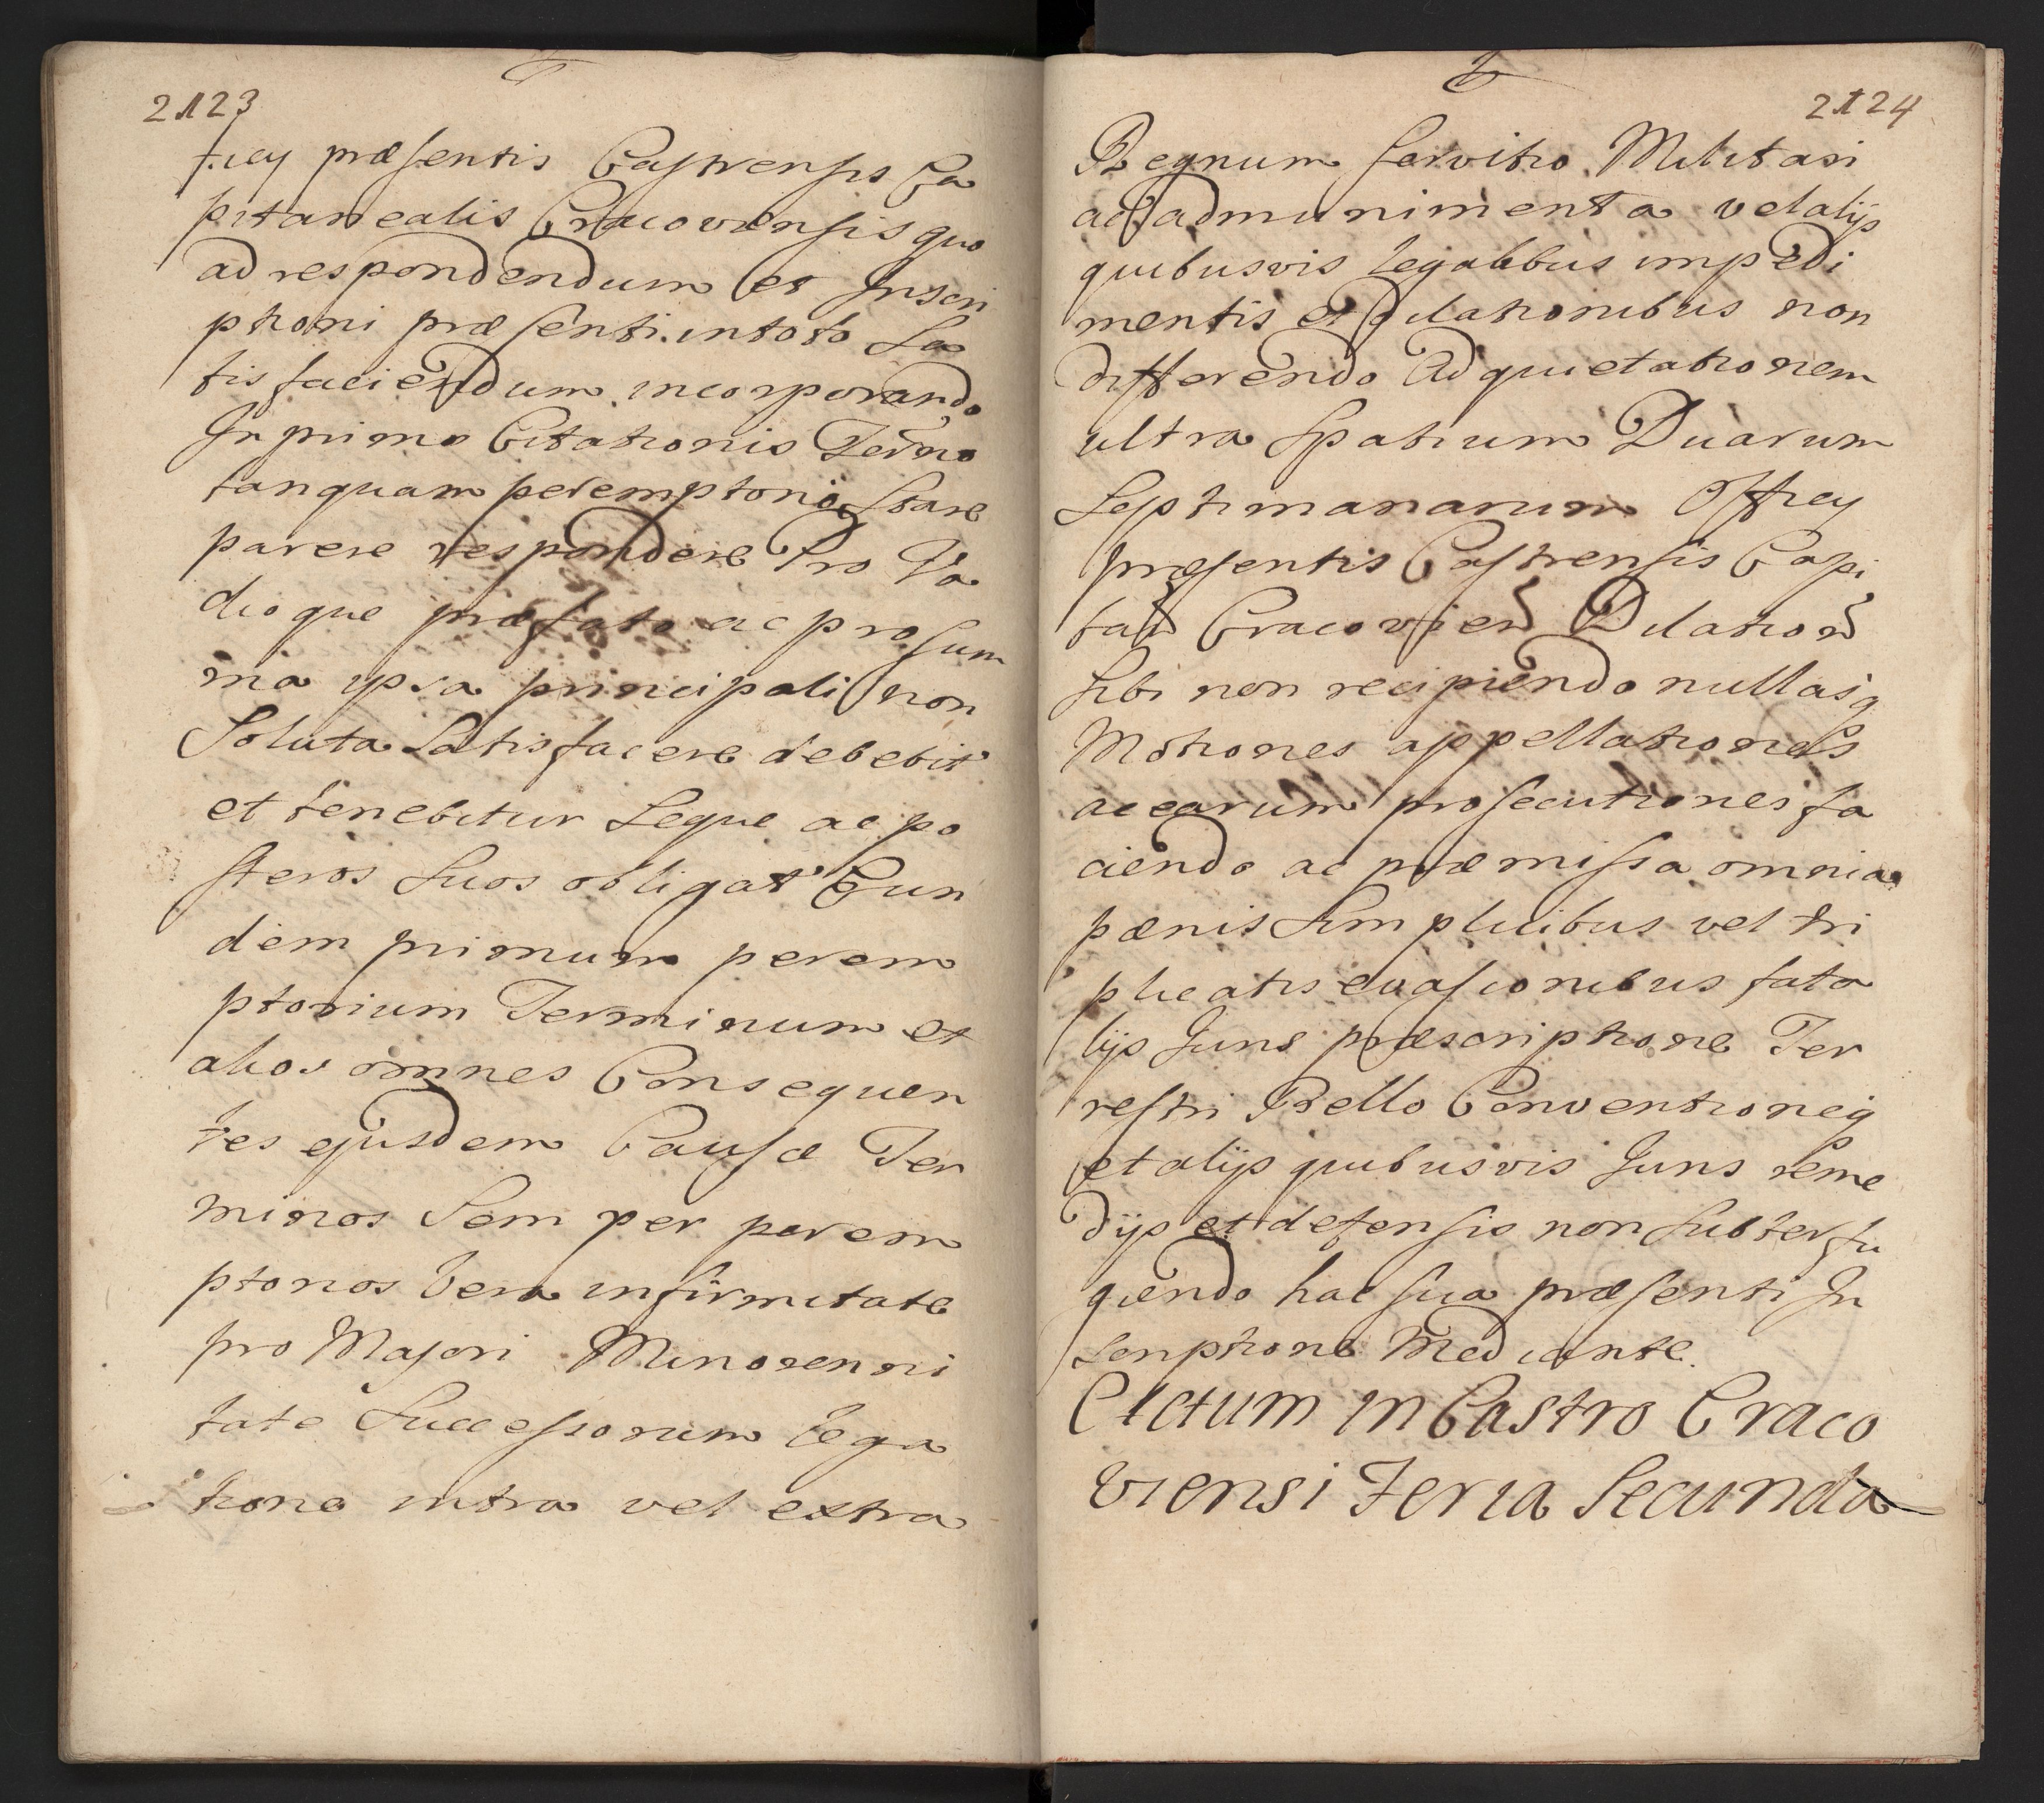 2123
ficy præsentis Castrensis Ca
pitanealis Cracoviensis quo
ad respondendum et Inscri
ptioni præsenti in toto Sa
tis faciendum incorporando
In primo Citationis Termo
tanquam peremptorio Stare
parere respondere Pro Va
dioque præfato ac pro sum
ma ypsa principali non
Soluta Satisfacere debebit
et tenebitur Seque ac po
steros Suos obligat Eun
dem primum perem
ptorium Terminum et
alios omnes Consequen
tes ejusdem Causæ Ter
minos Semper perem
ptorios Vera infirmitate
pro Majori Minorenni
tate Successorum Lega
tione intra vel extra
2124
Regnum servitio Militari
ad admunimenta vel alijs
quibusvis Legalibus impedi
mentis et dilationibus non
differendo Ad quietationem
ultra Spatium Duarum
Septimanarum Offcy
præsentis Castrensis Capi
tan Cracovien Dilation
Sibi non recipiendo nullasq
Motiones appellationes
ac earum prosecutiones fa
ciendo ac præmissa omnia
pænis Simplicibus vel tri
plicatis evasionibus fata
lijs Juris præscriptione Ter
restri Bello Conventioneq
et alijs quibusvis Juris reme
dijs et defensis non Subterfu
giendo hac sua præsenti In
scriptione Mediante.
Actum in Castro Craco
viensi Feria Secunda